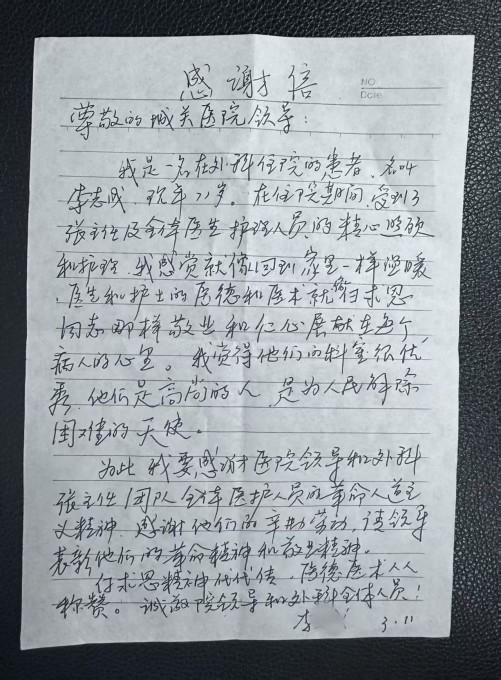 感谢信
NO
Date
尊敬的城关医院领导:
我是一名在外科住院的患者,名叫
李志成,现年71岁。在住院期间,受到了
张主任及全体医生护理人员的精心照顾
和护理,我感觉就像回到家里一样温暖
,医生和护士的医德和医术就像付求恩
同志那样敬业和仁心展献在每个
病人的心里。我觉得他们的科室很优
秀,他们是高尚的人,是为人民解除
困难的天使。
为此我要感谢医院领导和外科
张主任团队全体医护人员的革命人道主
义精神,感谢他们的辛勤劳动,请领导
表彰他们的革命精神和敬业精神。
付求思精神代代传,医德医术人人
称赞。诚敬院领导和外科全体人员!
李
3.11